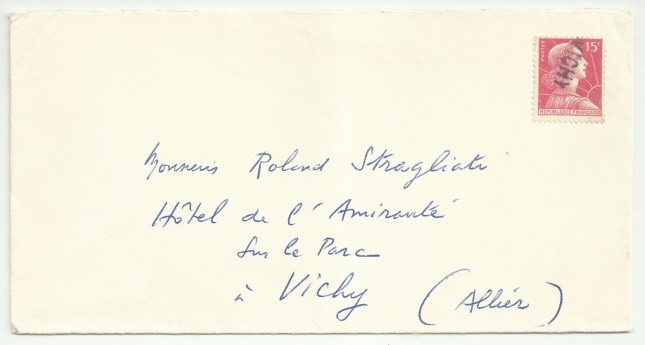 POSTES 15F
VICHY
REPUBLIQUE FRANÇAISE
Monsieur Roland Stragliati
Hôtel de l'Amirauté
Sur le Parc
à Vichy (Allier)